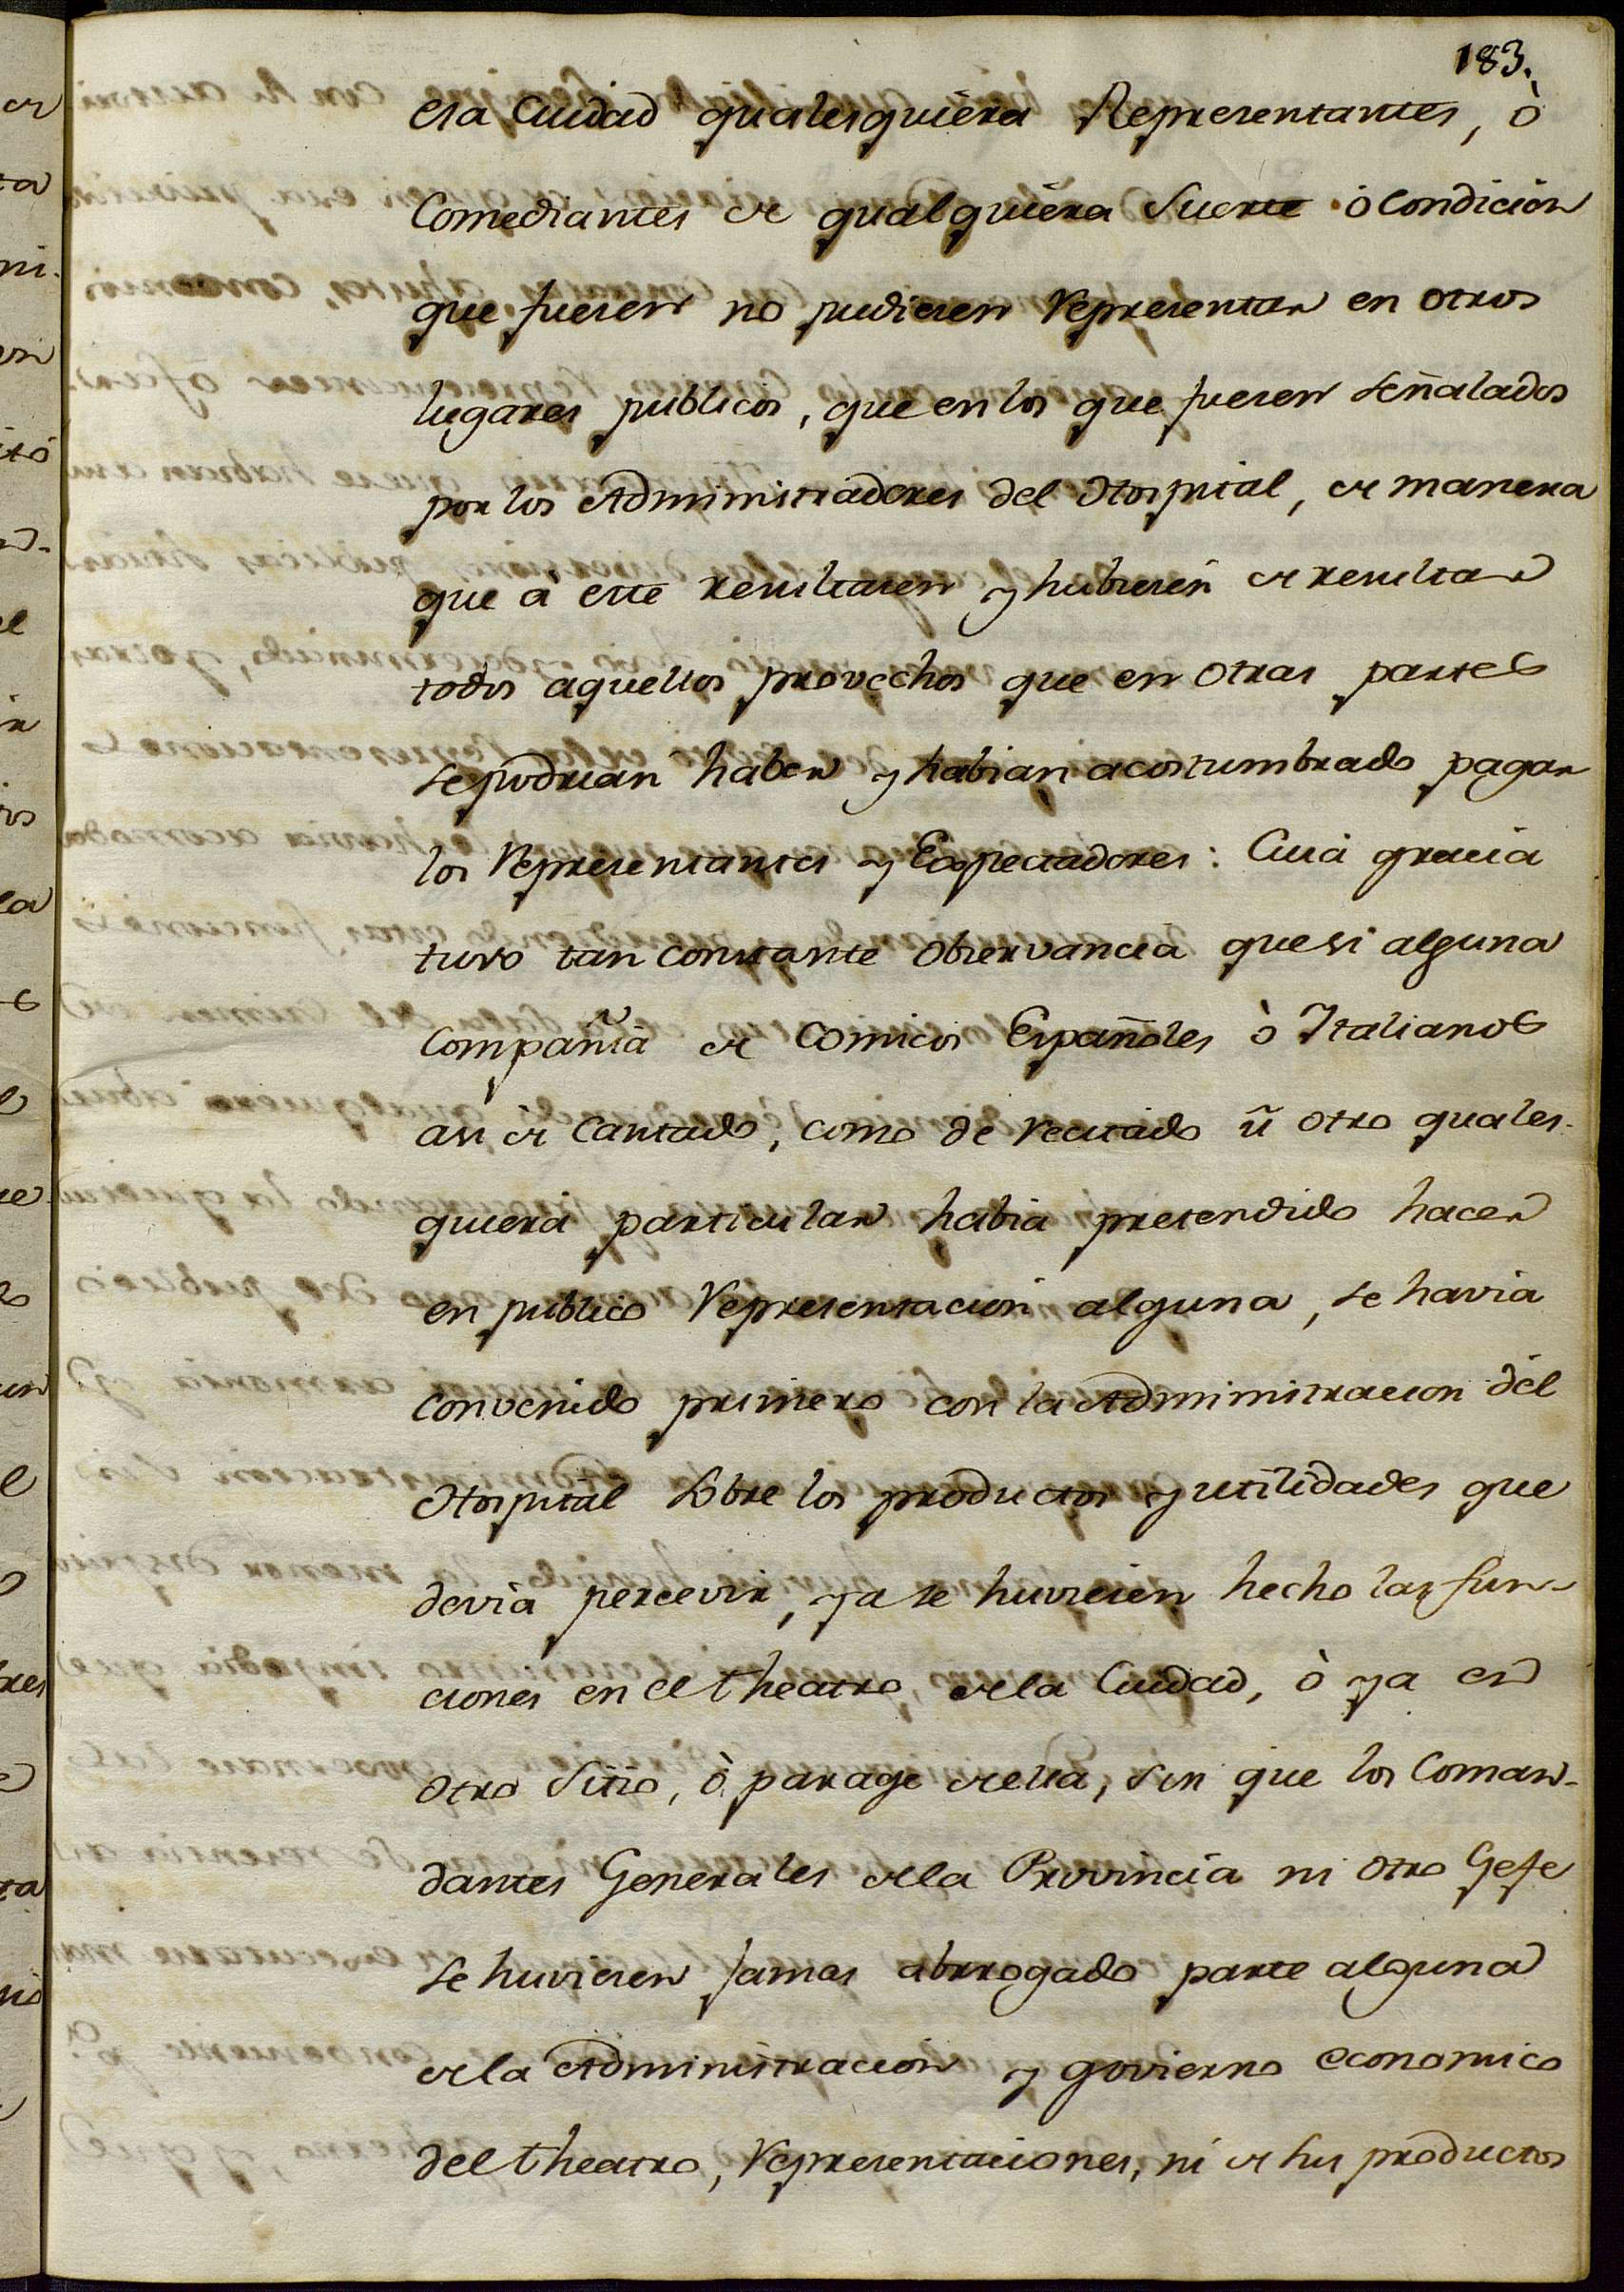 183.
esa Ciudad qualesquiera Representantes, ò
Comediantes de qualquiera Suerte ó Condicion
que fuesen no pudiesen Representar en otros
lugares publicos, que en los que fuesen señalados
por los Administradores del Hospital, de manera
que á este resultasen y hubiesen de resultar
todos aquellos provechos que en otras partes
se podrian haber y habian acostumbrado pagar
los Representantes y Espectadores: Cuia gracia
tuvo tan constante observancia que si alguna
Compañia de Comicos Españoles ò Italianos
asi de Cantado, como de recitado ũ otro quales-
quiera particular habia pretendido hacer
en publico Representacion alguna, se havia
convenido primero con la Administracion del
Hospital sobre los productos y utilidades que
devia percevir, ya se huviesen hecho las fun-
ciones en el theatro de la Ciudad, ò ya en
otro Sitio, ò parage de ella, sin que los Coman-
dantes Generales de la Provincia ni otro Gefe
se huviesen jamas abrrogado parte alguna
de la Administracion y govierno economico
del theatro, Representaciones, ni de sus productos